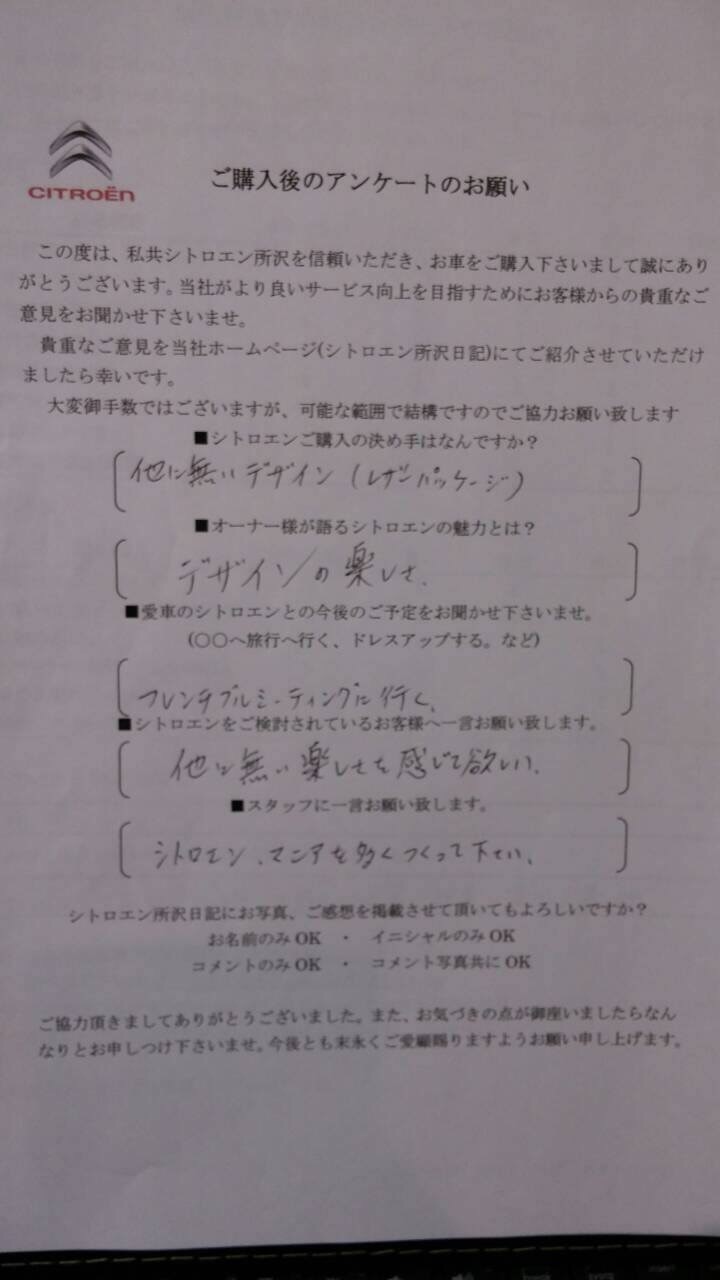 CITROËN
ご購入後のアンケートのお願い
この度は、私共シトロエン所沢を信頼いただき、お車をご購入下さいまして誠にあり
がとうございます。当社がより良いサービス向上を目指すためにお客様からの貴重なご
意見をお聞かせ下さいませ。
貴重なご意見を当社ホームページ(シトロエン所沢日記)にてご紹介させていただけ
ましたら幸いです。
大変御手数ではございますが、可能な範囲で結構ですのでご協力お願い致します
■シトロエンご購入の決め手はなんですか？
他に無いデザイン(レザーパッケージ)
■オーナー様が語るシトロエンの魅力とは？
デザインの楽しさ。
■愛車のシトロエンとの今後のご予定をお聞かせ下さいませ。
(○○へ旅行へ行く、ドレスアップする。など)
フレンチブルミーティングに行く。
■シトロエンをご検討されているお客様へ一言お願い致します。
他に無い楽しさを感じて欲しい。
■スタッフに一言お願い致します。
シトロエン、マニアを多くつくって下さい。
シトロエン所沢日記にお写真、ご感想を掲載させて頂いてもよろしいですか？
お名前のみ OK ・ イニシャルのみ OK
コメントのみ OK ・ コメント写真共に OK
ご協力頂きましてありがとうございました。また、お気づきの点が御座いましたらなん
なりとお申しつけ下さいませ。今後とも末永くご愛顧賜りますようお願い申し上げます。